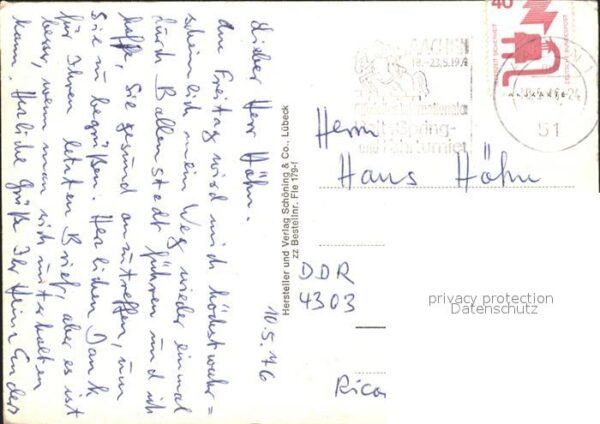 10.5.76
Lieber Herr Höhn.
Am Freitag wird mich höchstwahr=
scheinlich mein Weg wieder einmal
durch Ballenstedt führen und ich
hoffe, Sie gesund anzutreffen, um
Sie zu begrüßen. Herzlichen Dank
für Ihren letzten Brief, aber es ist
besser, wenn man sich unterhalten
kann. Herzliche Grüße Ihr Heinz Enders
Hersteller und Verlag Schöning & Co., Lübeck
zz Bestellnr. Fle 179-I
40
DEUTSCHE BUNDESPOST
AACHEN
18.-23.5.197
Reit-, Spring-
und Fahrturnier
51
Herrn
Hans Höhn
DDR
4303
privacy protection
Datenschutz